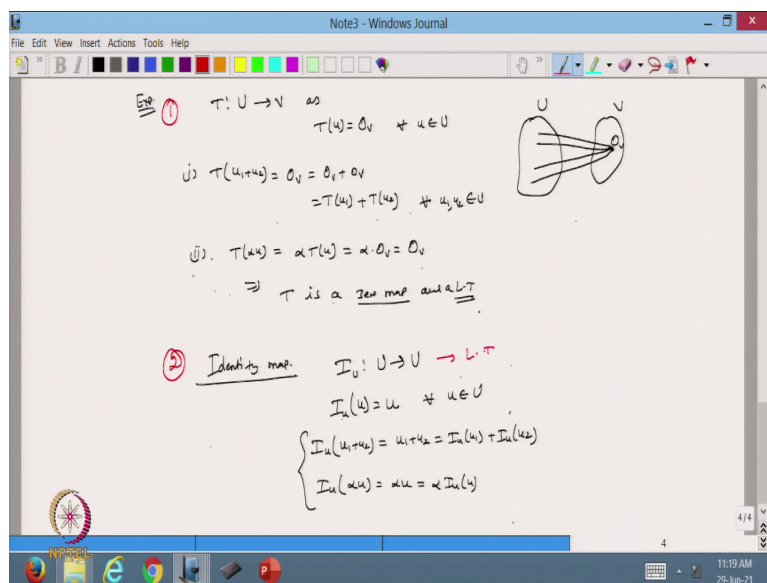 Note3 - Windows Journal
File Edit View Insert Actions Tools Help
Exp. ① T: U → V as
T(u) = 0_V ∀ u ∈ U
U V
0_V
i) T(u₁+u₂) = 0_V = 0_V + 0_V
= T(u₁) + T(u₂) ∀ u₁,u₂ ∈ U
(ii). T(αu) = αT(u) = α·0_V = 0_V
⇒ T is a zero map and a L.T
② Identity map. I_u: U → U → L.T
I_u(u) = u ∀ u ∈ U
I_u(u₁+u₂) = u₁+u₂ = I_u(u₁) + I_u(u₂)
I_u(αu) = αu = α I_u(u)
NPTEL
4/4
4
11:19 AM
29-Jun-21